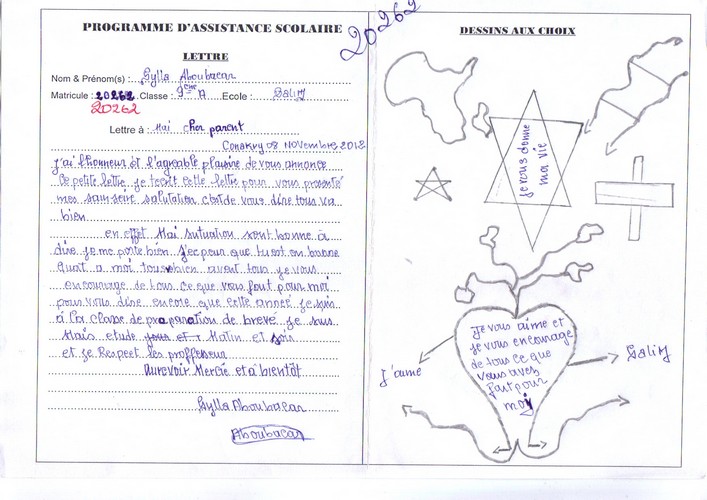 PROGRAMME D'ASSISTANCE SCOLAIRE
LETTRE
Nom & Prénom(s) : Sylla Aboubacar
Matricule : 20262 Classe : 9eme A Ecole : SaliM
20262
Lettre à : Mai cher parent
Conakry 08 Novembre 2012
j'ai l'honneur et l'agreable plaisire de vous annonce
Ce petite lettre je tecrit cette lettre pour vous presenté
mes sain seire salutation c'est de vous dire tous va
bien
en effet Mai sutuation sont bonne à
dire je me porte bien j'ecpour que tu est en bonne
quant a moi tous bien avant tous je vous
encourage de tous ce que vous fait pour moi
pour vous dire encore que cette anneé je suis
à la classe de preparation de brevé je suis
Mais etude jours et Matin et sois
et je Respect les proffesseur
aurevoir Mercie et a bientôt
Sylla Aboubacar
Aboubacar
20262
DESSINS AUX CHOIX
je vous donne
ma vie
Je vous aime et
je vous encourage
de tous ce que
vous avez
fait pour
moi
J'aime
SaliM